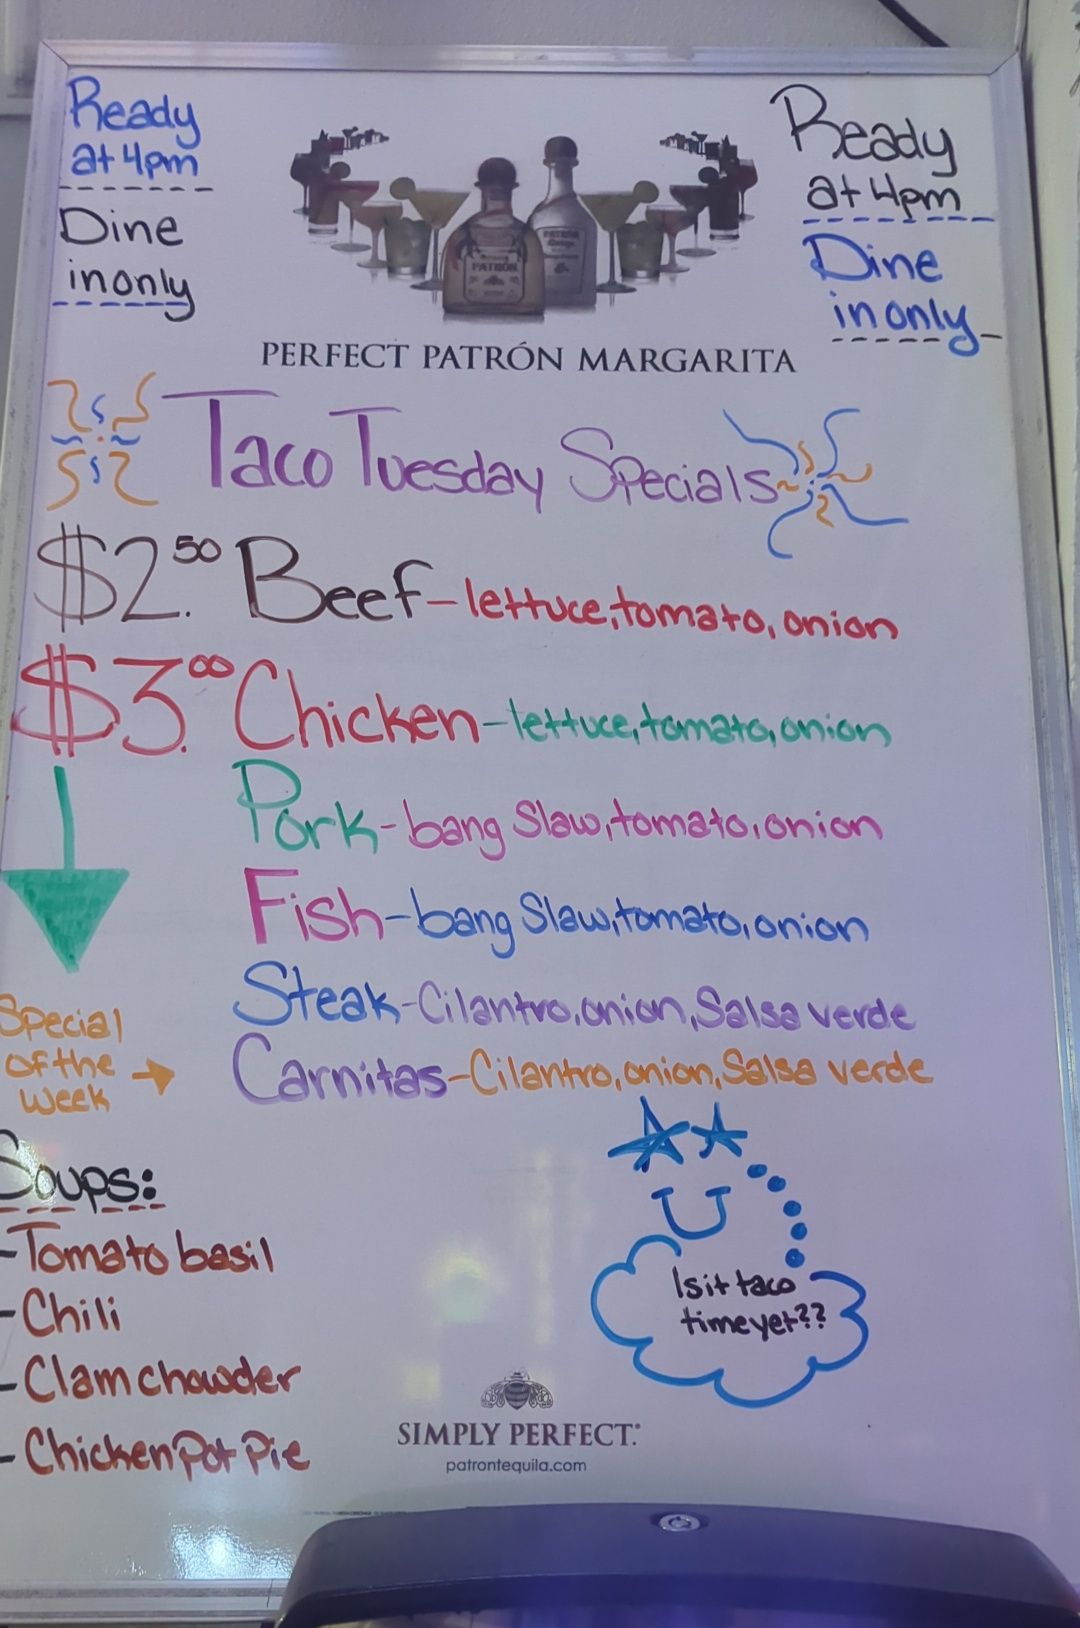 Ready
at 4pm
Dine
in only
Ready
at 4pm
Dine
in only
PATRÓN
PATRÓN
PERFECT PATRÓN MARGARITA
Taco Tuesday Specials
$2.50 Beef - lettuce, tomato, onion
$3.00 Chicken - lettuce, tomato, onion
Pork - bang Slaw, tomato, onion
Fish - bang Slaw, tomato, onion
Steak - Cilantro, onion, Salsa verde
Special
of the
week → Carnitas - Cilantro, onion, Salsa verde
Soups:
- Tomato basil
- Chili
- Clam chowder
- Chicken Pot Pie
Is it taco
time yet??
SIMPLY PERFECT.
patrontequila.com